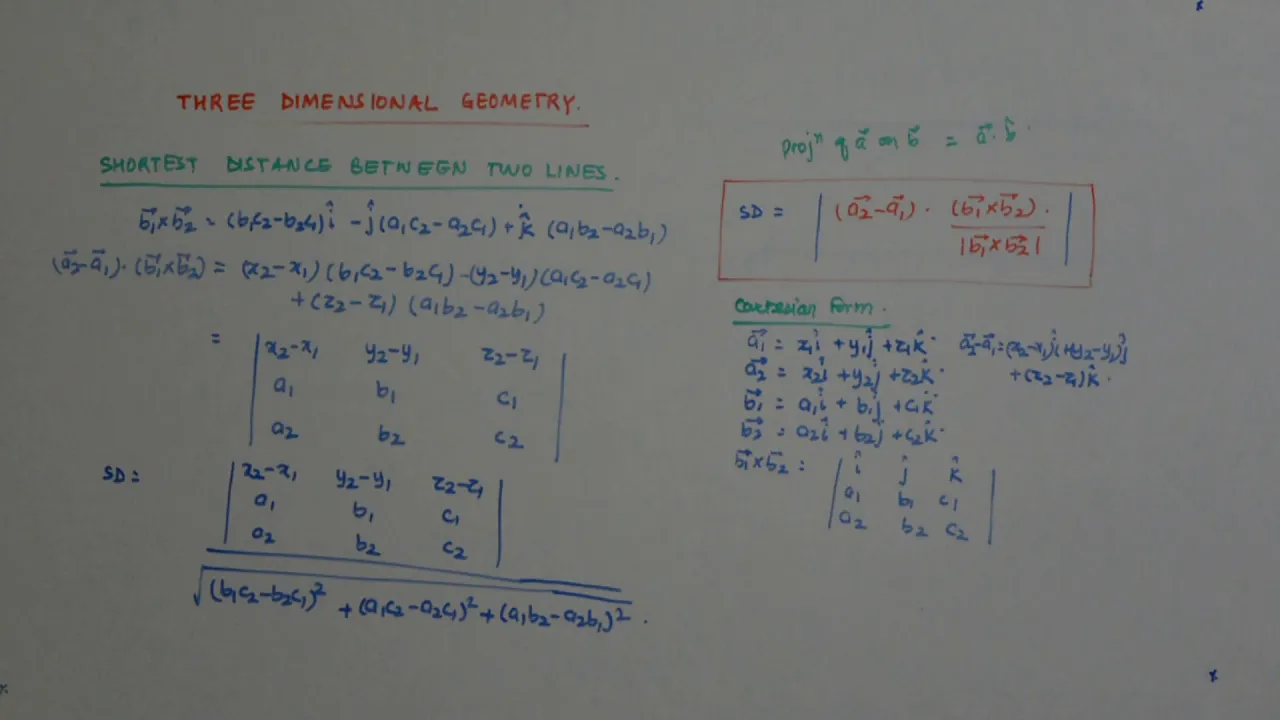 THREE DIMENSIONAL GEOMETRY.
SHORTEST DISTANCE BETWEEN TWO LINES.
b₁⃗×b₂⃗ = (b₁c₂-b₂c₁)î - ĵ(a₁c₂-a₂c₁) + k̂ (a₁b₂-a₂b₁)
(a₂⃗-a₁⃗)·(b₁⃗×b₂⃗) = (x₂-x₁)(b₁c₂-b₂c₁) -(y₂-y₁)(a₁c₂-a₂c₁)
+(z₂-z₁) (a₁b₂-a₂b₁)
= | x₂-x₁ y₂-y₁ z₂-z₁ |
| a₁ b₁ c₁ |
| a₂ b₂ c₂ |
SD = | x₂-x₁ y₂-y₁ z₂-z₁ |
| a₁ b₁ c₁ |
| a₂ b₂ c₂ |
√(b₁c₂-b₂c₁)² + (a₁c₂-a₂c₁)² + (a₁b₂-a₂b₁)² .
Projⁿ of a⃗ on b⃗ = a⃗·b̂.
SD = | (a₂⃗-a₁⃗) · (b₁⃗×b₂⃗) . |
|b₁⃗×b₂⃗|
Cartesian Form .
a₁⃗ = x₁î + y₁ĵ + z₁k̂. a₂⃗-a₁⃗=(x₂-x₁)î+(y₂-y₁)ĵ
a₂⃗ = x₂î + y₂ĵ + z₂k̂. +(z₂-z₁)k̂.
b₁⃗ = a₁î + b₁ĵ + c₁k̂
b₂⃗ = a₂î + b₂ĵ + c₂k̂.
b₁⃗×b₂⃗ = | î ĵ k̂ |
| a₁ b₁ c₁ |
| a₂ b₂ c₂ |